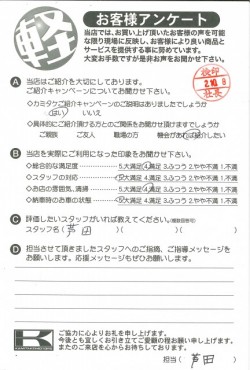 軽
お客様アンケート
当店では、お買い上げ頂いたお客様の声を可能
な限り現場に反映し、お客様により良い商品と
サービスを提供する事に努めています。
大変お手数ですが是非お声をお聞かせ下さい。
検印
社長
A 当店はご紹介を大切にしております。
ご紹介キャンペーンについてお聞かせ下さい。
◇カミタケご紹介キャンペーンの説明はありましたでしょうか
はい いいえ
◇具体的にご紹介頂ける方とのご関係をお聞かせ頂けますでしょうか
ご親族 ご友人 職場の方 機会があれば紹介したい
B 当店を実際にご利用になった印象をお聞かせ下さい。
◇総合的な満足度 5.大満足 4.満足 3.ふつう 2.やや不満 1.不満
◇スタッフの対応 5.大満足 4.満足 3.ふつう 2.やや不満 1.不満
◇お店の雰囲気、清掃 5.大満足 4.満足 3.ふつう 2.やや不満 1.不満
◇納車時のお車の状態 5.大満足 4.満足 3.ふつう 2.やや不満 1.不満
C 評価したいスタッフがいれば教えてください。(複数回答可)
スタッフ名 ( 芦田 ) ( )
D 担当させて頂きましたスタッフへのご指摘、ご指導メッセージを
お願いします。応援メッセージもぜひお願いします。
K
ご協力に心よりお礼を申し上げます。
今後とも宜しくお引き立てご愛顧の程お願い申し上げます。
またのご来店を心からお待ちしております。
担当 ( 芦田 )